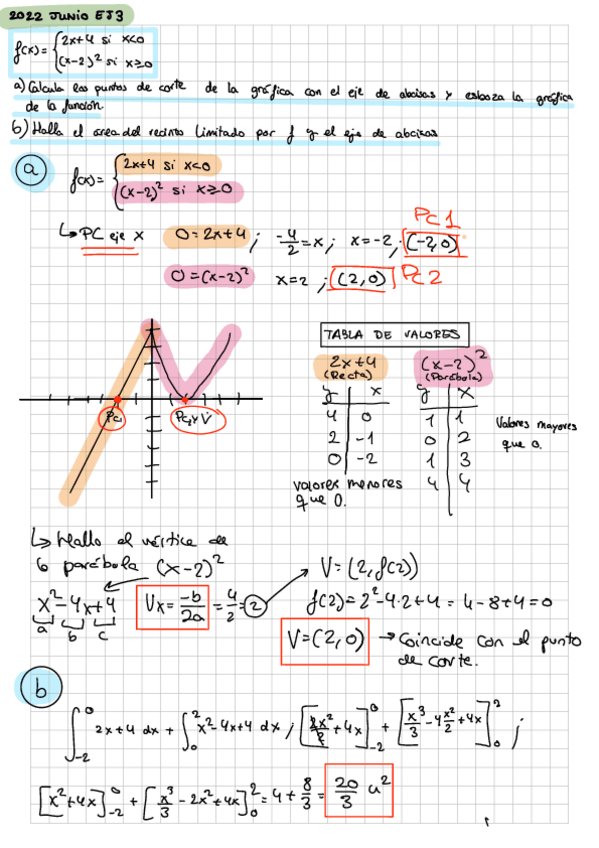 2022 JUNIO EJ3
f(x)= { 2x+4 si x<0
(x-2)² si x≥0
a) Calcula los puntos de corte de la gráfica con el eje de abcisas y esboza la gráfica
de la función.
b) Halla el área del recinto limitado por f y el eje de abcisas
a
f(x)= { 2x+4 si x<0
(x-2)² si x≥0
PC1
↳ PC eje x 0=2x+4 ; -4/2=x ; x=-2 ; (-2,0)
0=(x-2)² x=2 ; (2,0) PC2
TABLA DE VALORES
2x+4 (x-2)²
(Recta) (Parábola)
y x y x
4 0 1 1
2 -1 0 2
0 -2 1 3
4 4
Valores mayores
que 0.
valores menores
que 0.
PC1 PC2 y V
↳ Hallo el vértice de
la parábola (x-2)²
x²-4x+4
a b c
Vx= -b/2a = 4/2 = 2
V=(2,f(2))
f(2)=2²-4·2+4= 4-8+4=0
V=(2,0) → Coincide con el punto
de corte.
b
∫₋₂⁰ 2x+4 dx + ∫₀² x²-4x+4 dx ; [2x²/2+4x]₋₂⁰ + [x³/3-4x²/2+4x]₀² ;
[x²+4x]₋₂⁰ + [x³/3-2x²+4x]₀² = 4+8/3 = 20/3 u²